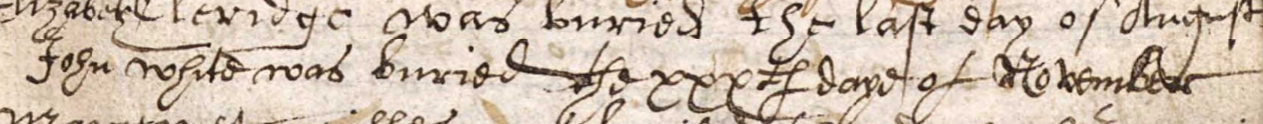 Elizabeth Cleridge was buried the last day of August
John white was buried the xxxth daye of November